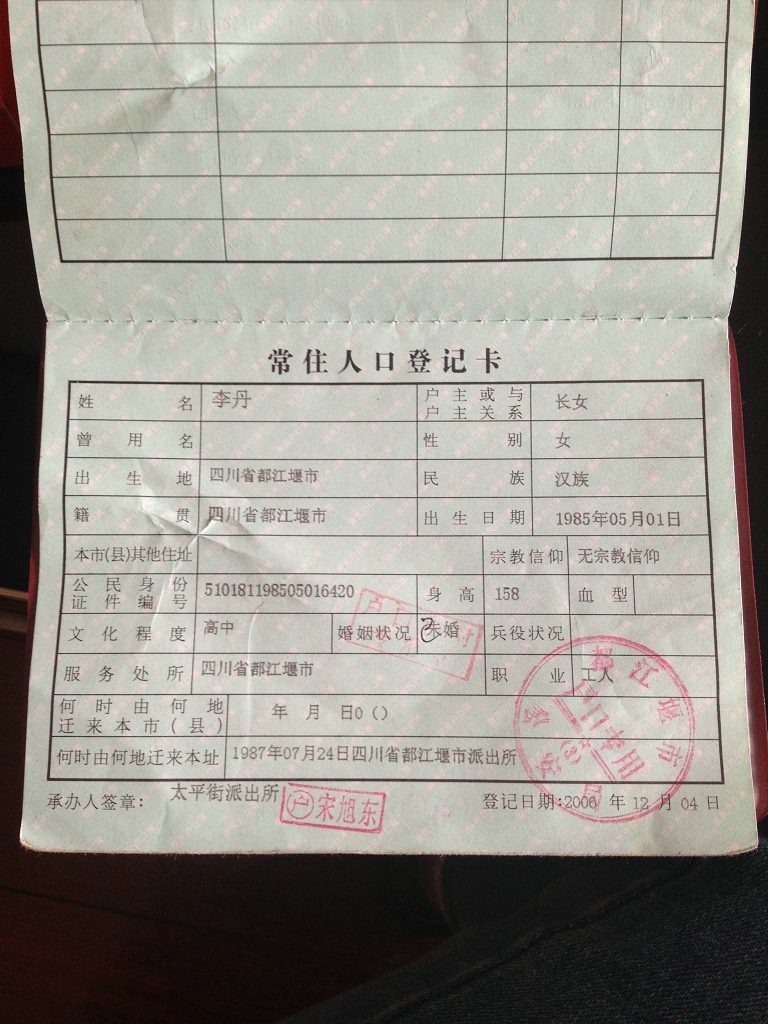 常住人口登记卡
姓名 李丹 户主或与户主关系 长女
曾用名 性别 女
出生地 四川省都江堰市 民族 汉族
籍贯 四川省都江堰市 出生日期 1985年05月01日
本市(县)其他住址 宗教信仰 无宗教信仰
公民身份证件编号 510181198505016420 身高 158 血型
文化程度 高中 婚姻状况 已婚 兵役状况
服务处所 四川省都江堰市 职业 工人
何时由何地迁来本市(县) 年 月 日0（）
何时由何地迁来本址 1987年07月24日四川省都江堰市派出所
承办人签章: 太平街派出所 户 宋旭东 登记日期:2006 年 12 月 04 日
都江堰市
户口专用